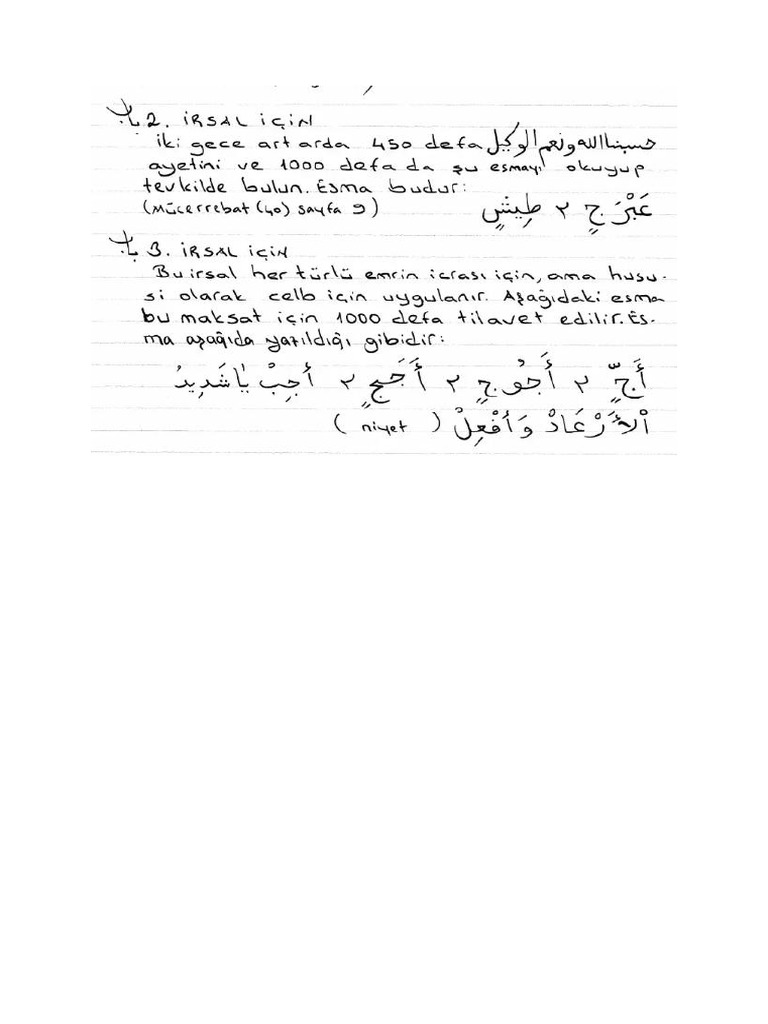 باب 2. İRSAL İÇİN
İki gece art arda 450 defa حسبنا الله ونعم الوكيل
ayetini ve 1000 defa da şu esmayı okuyup
tevkilde bulun. Esma budur:
(Mücerrebat (40) sayfa 9) عَبْرَجٍ ٢ طِيشٍ
باب 3. İRSAL İÇİN
Bu irsal her türlü emrin icrası için, ama husu-
si olarak celb için uygulanır. Aşağıdaki esma
bu maksat için 1000 defa tilavet edilir. Es-
ma aşağıda yazıldığı gibidir:
أَجٍّ ٢ أَجُوجٍ ٢ أَجَجٍ ٢ أَجِبْ يَا شَدِيدُ
الْأَرْعَادْ وَأَفْعِلْ ( niyet )